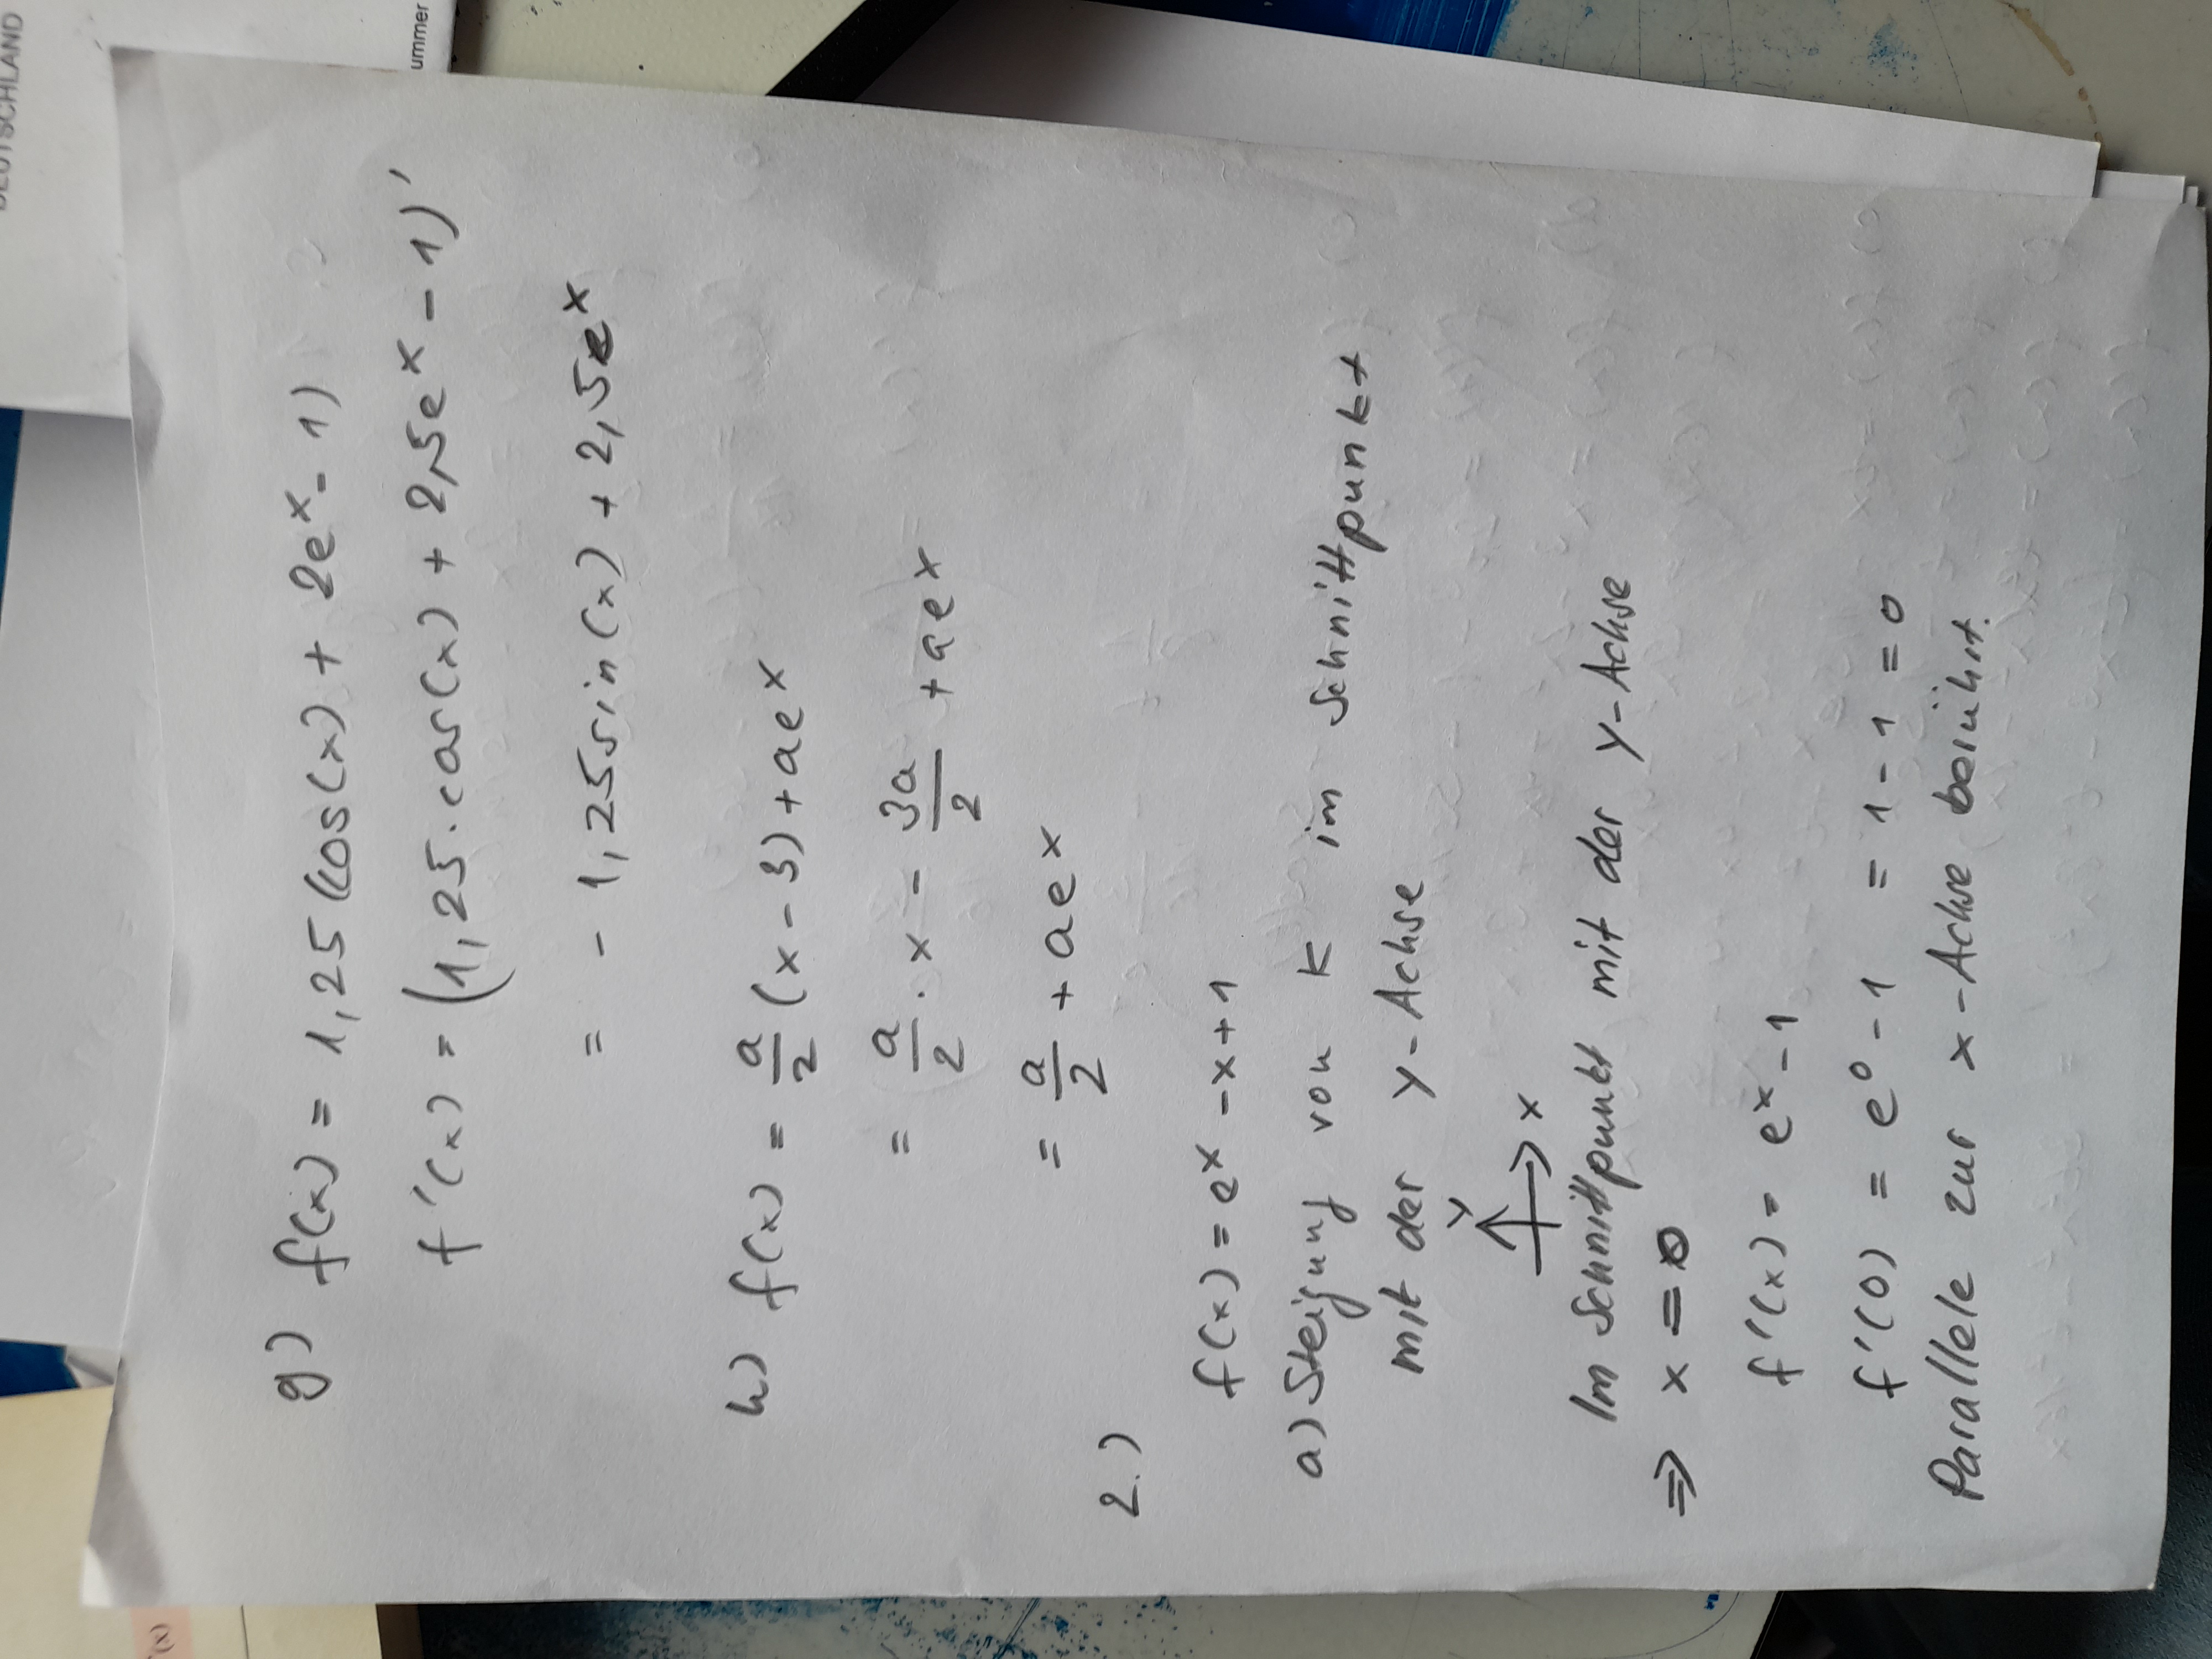 DEUTSCHLAND
ummer
g) f(x) = 1,25(cos(x) + 2e^x - 1)
f'(x) = (1,25·cos(x) + 2,5e^x - 1)'
= - 1,25sin(x) + 2,5e^x
h) f(x) = a/2 (x - 3) + ae^x
= a/2 · x - 3a/2 + ae^x
= a/2 + ae^x
2.)
f(x) = e^x - x + 1
a) Steigung von K im Schnittpunkt
mit der y-Achse
y
x
Im Schnittpunkt mit der y-Achse
⇒ x = 0
f'(x) = e^x - 1
f'(0) = e^0 - 1 = 1 - 1 = 0
Parallele zur x-Achse berührt.
(x)